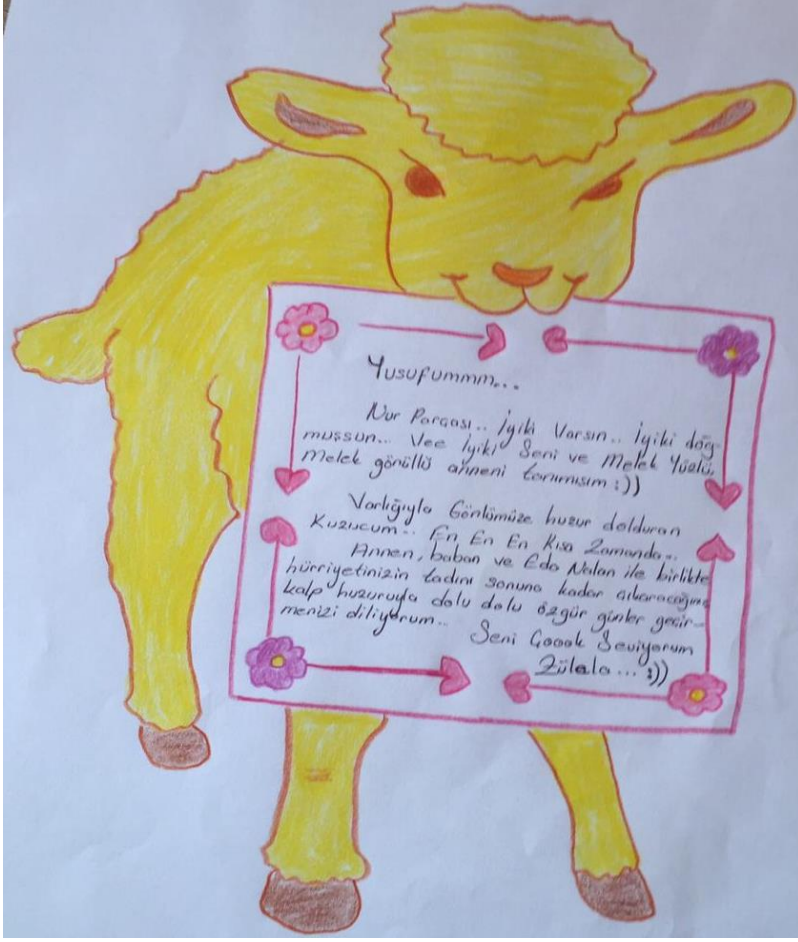 Yusufummm...
Nur Parçası.. İyiki Varsın.. İyiki doğ-
muşsun... Vee İyiki Seni ve Melek Yüzlü,
Melek gönüllü anneni tanımışım :))
Varlığıyla Gönlümüze huzur dolduran
Kuzucum.. En En En Kısa Zamanda..
Annen, baban ve Eda Nalan ile birlikte
hürriyetinizin tadını sonuna kadar çıkaracağınız
kalp huzuruyla dolu dolu özgür günler geçir-
menizi diliyorum..
Seni Çoook Seviyorum
Zülala... :))